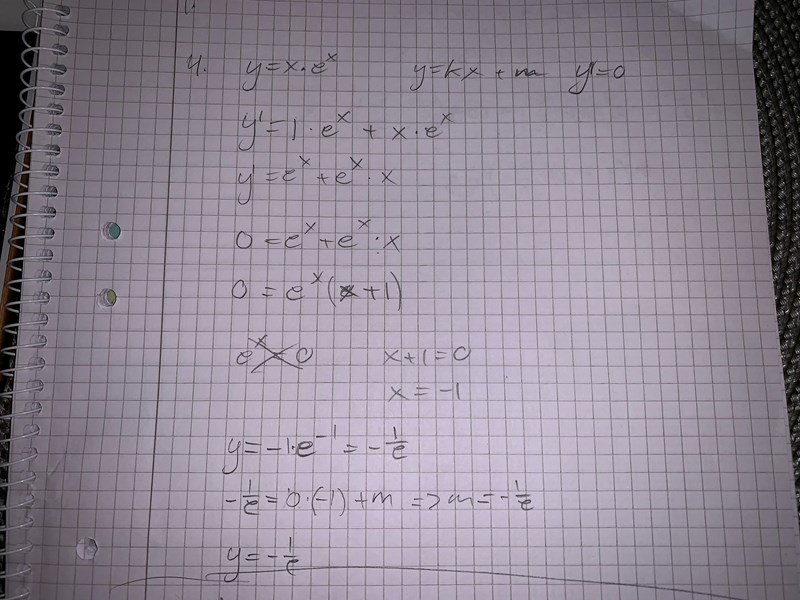 4. y=x·eˣ y=kx+m y'=0
y'=1·eˣ+x·eˣ
y'=eˣ+eˣ·x
0=eˣ+eˣ·x
0=eˣ(x+1)
eˣ=0 x+1=0
x=-1
y=-1·e⁻¹=-1/e
-1/e=0·(-1)+m => m=-1/e
y=-1/e